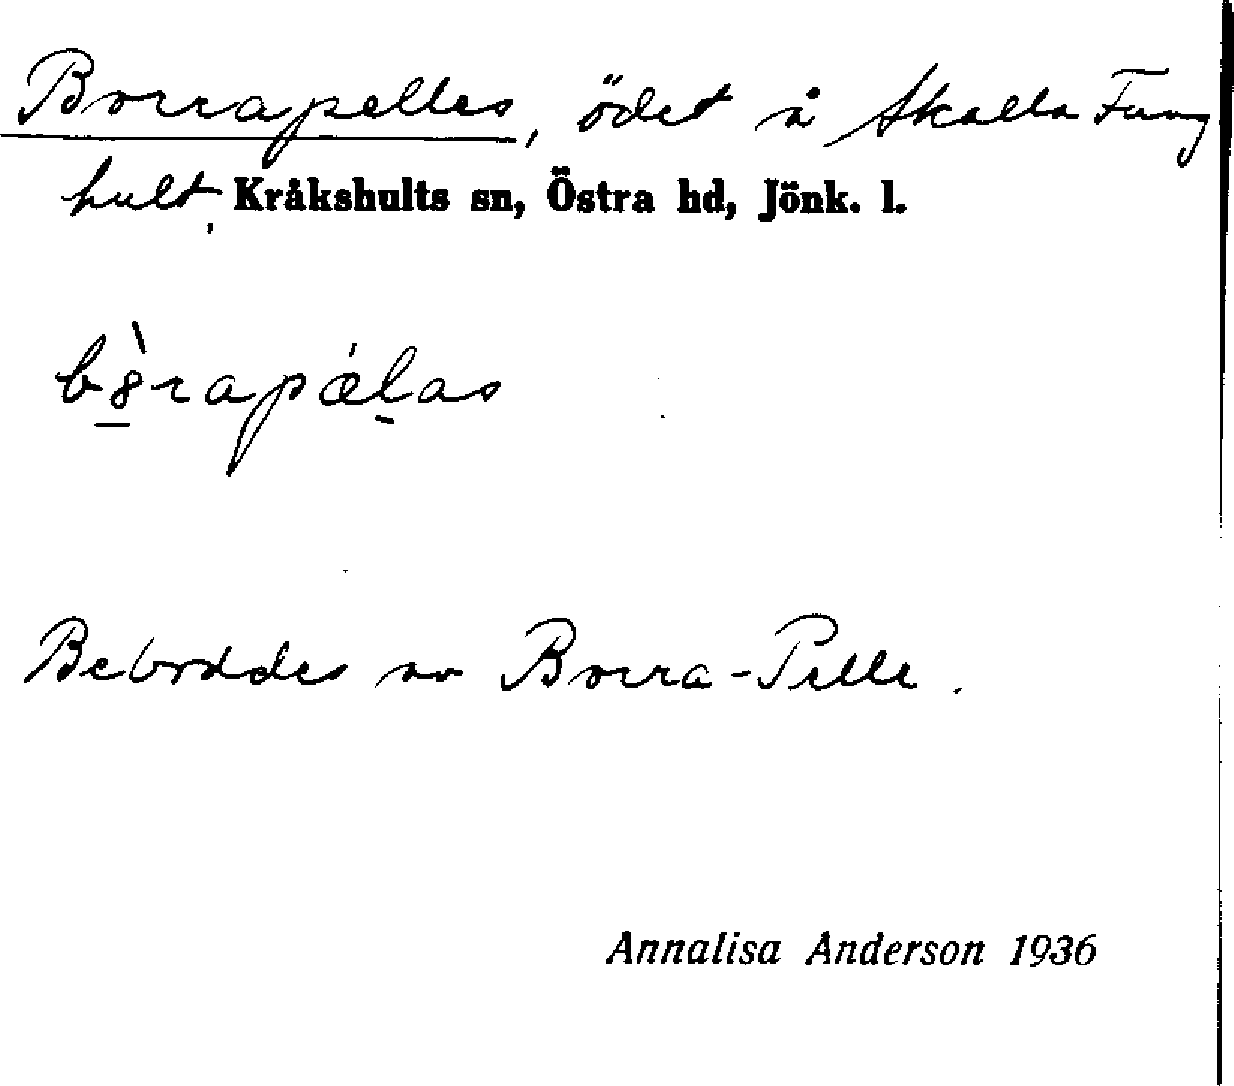 Borrapelles, ödet å Skälla Fung
hult, Kråkshults sn, Östra hd, Jönk. l.
Beboddes av Borra-Pelle.
Annalisa Anderson 1936